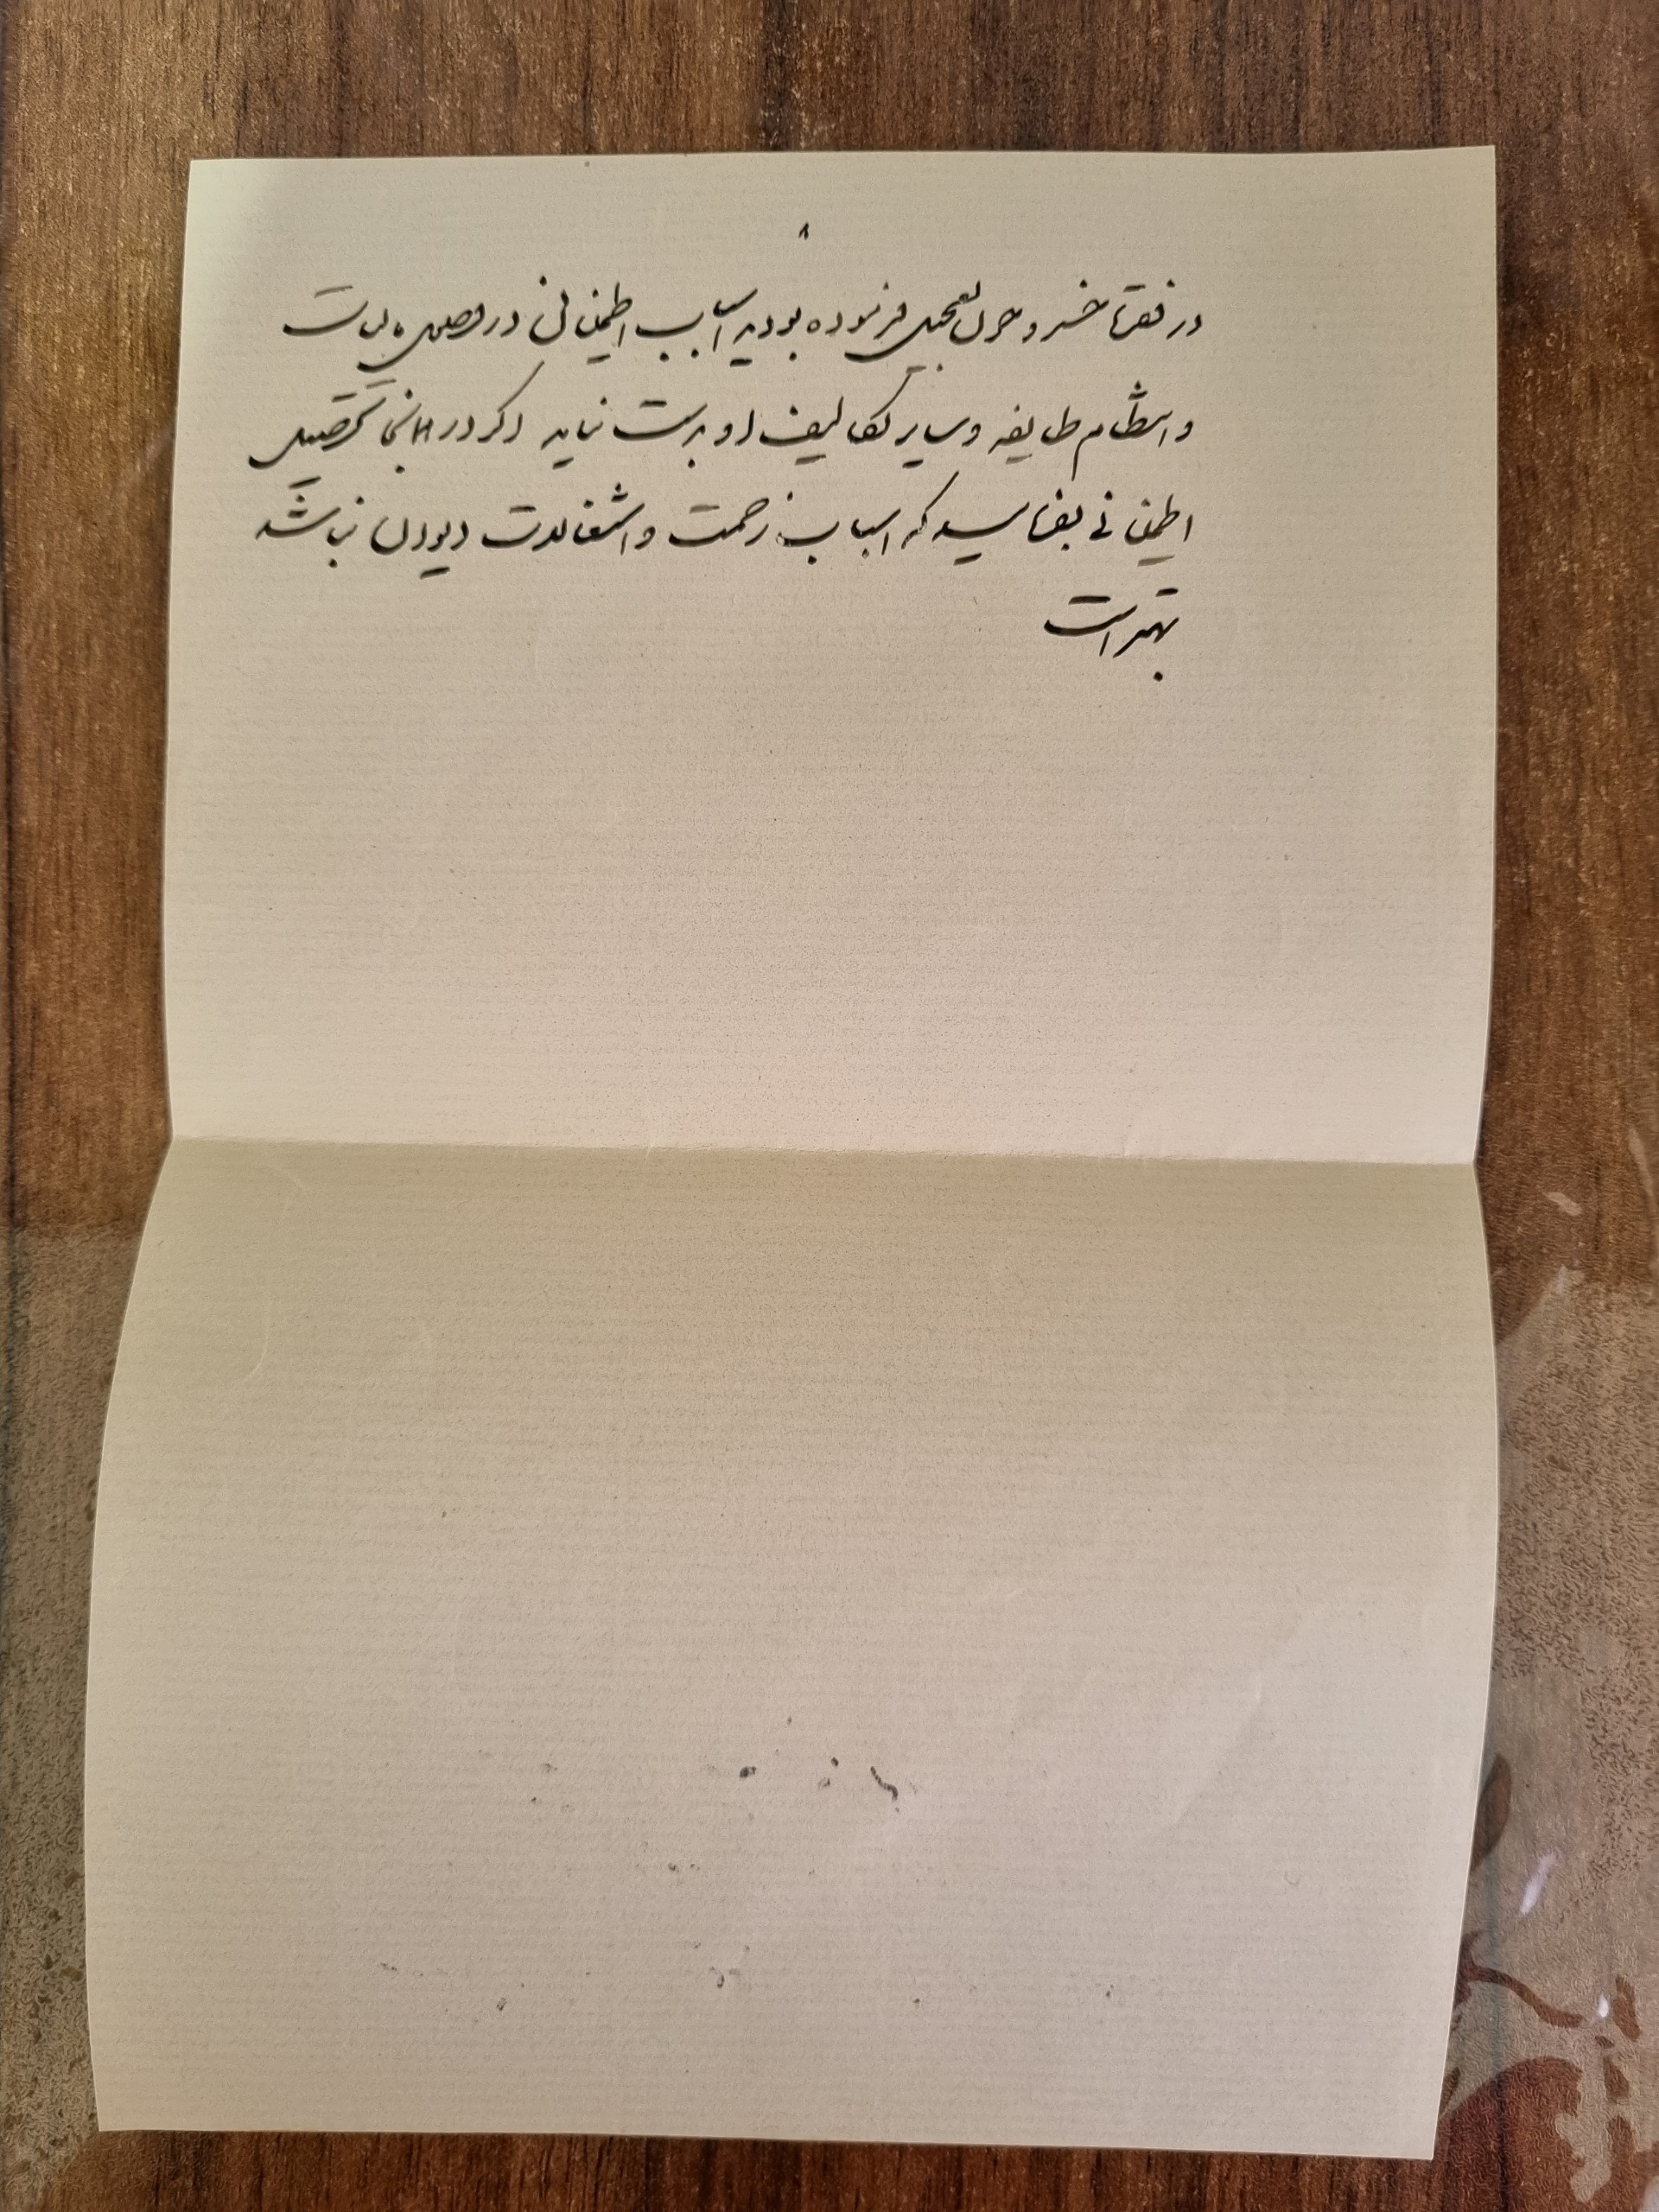 ۸
در فقره خسرو خان تعجیل فرموده بودید اسباب اطمینانی در وصول مالیات
و انتظام طایفه و سایر تکالیف او بدست نیاید اگر در اینجا تحصیل
اطمینانی بفرمایید که اسباب زحمت و اشتغالات دیوان نباشد
بهتر است